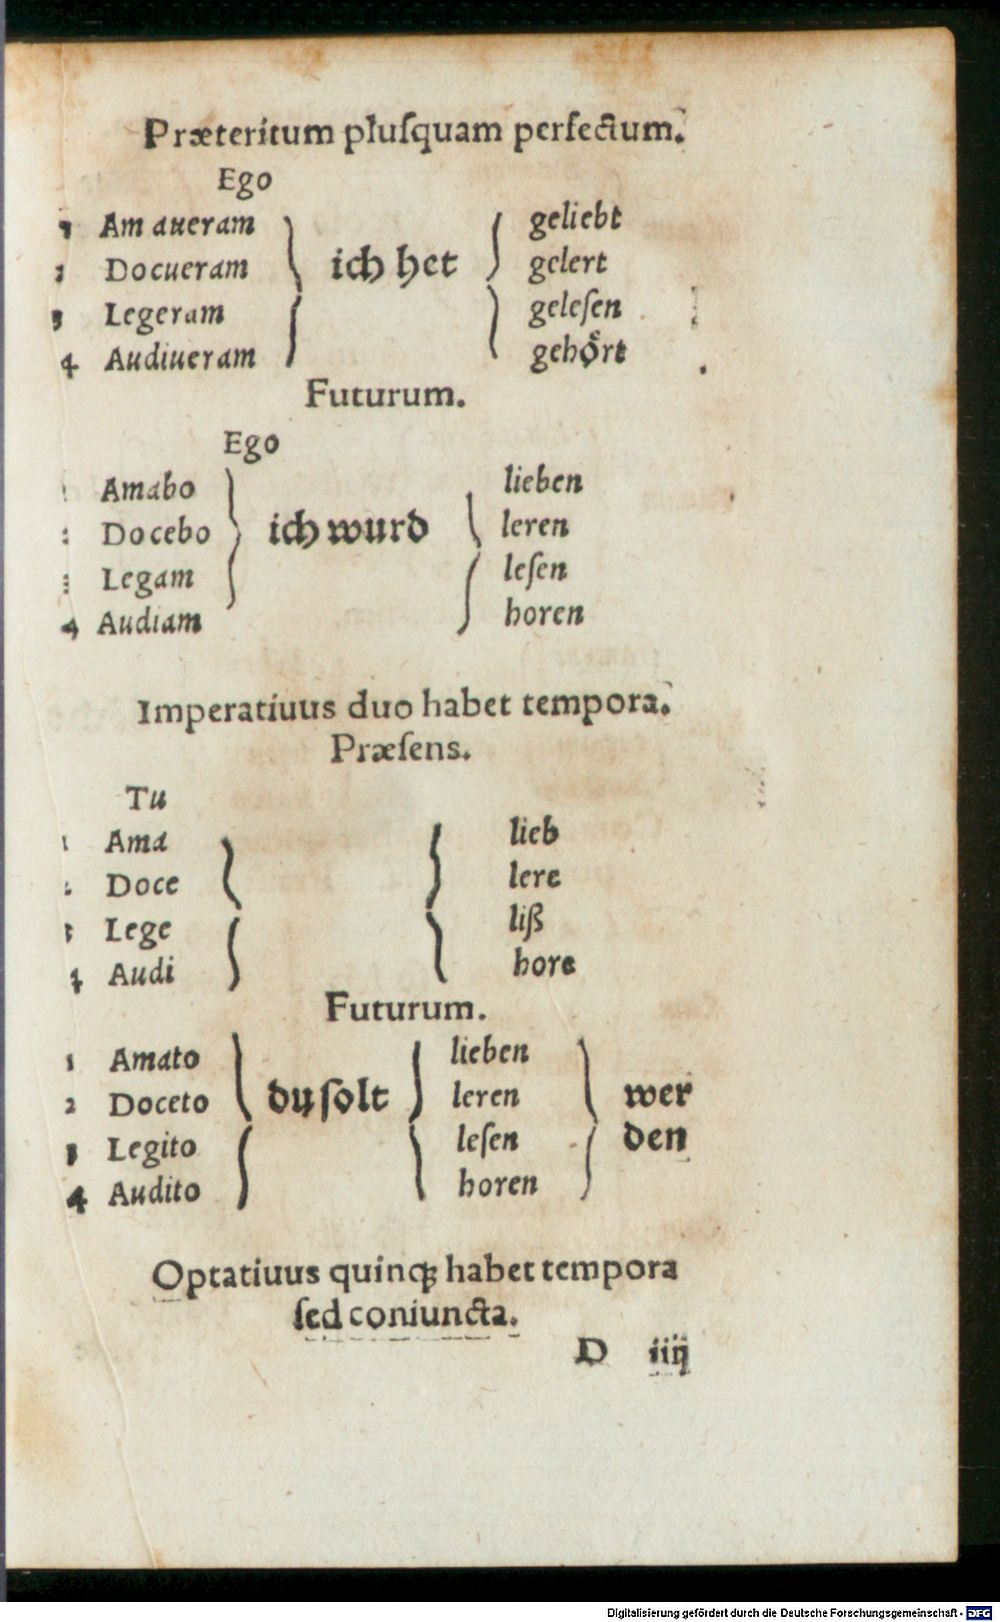 Præteritum pluſquam perfectum.
Ego
1 Amaueram ich het geliebt
2 Docueram gelert
3 Legeram geleſen
4 Audiueram gehoͤrt
Futurum.
Ego
1 Amabo lieben
2 Docebo ich wurd leren
3 Legam leſen
4 Audiam horen
Imperatiuus duo habet tempora.
Præſens.
Tu
1 Ama lieb
2 Doce lere
3 Lege liß
4 Audi hore
Futurum.
1 Amato lieben
2 Doceto du ſolt leren wer
3 Legito leſen den
4 Audito horen
Optatiuus quinqꝫ habet tempora
ſed coniuncta.
D iiij
Digitalisierung gefördert durch die Deutsche Forschungsgemeinschaft - DFG